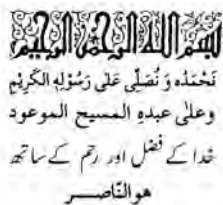 بسم الله الرحمن الرحيم
نَحْمَدُه وَ نُصَلِّى عَلٰى رَسُوْلِهِ الْكَرِيْمِ
وعلٰى عبده المسيح الموعود
خدا کے فضل اور رحم کے ساتھ
هو النّاصــر